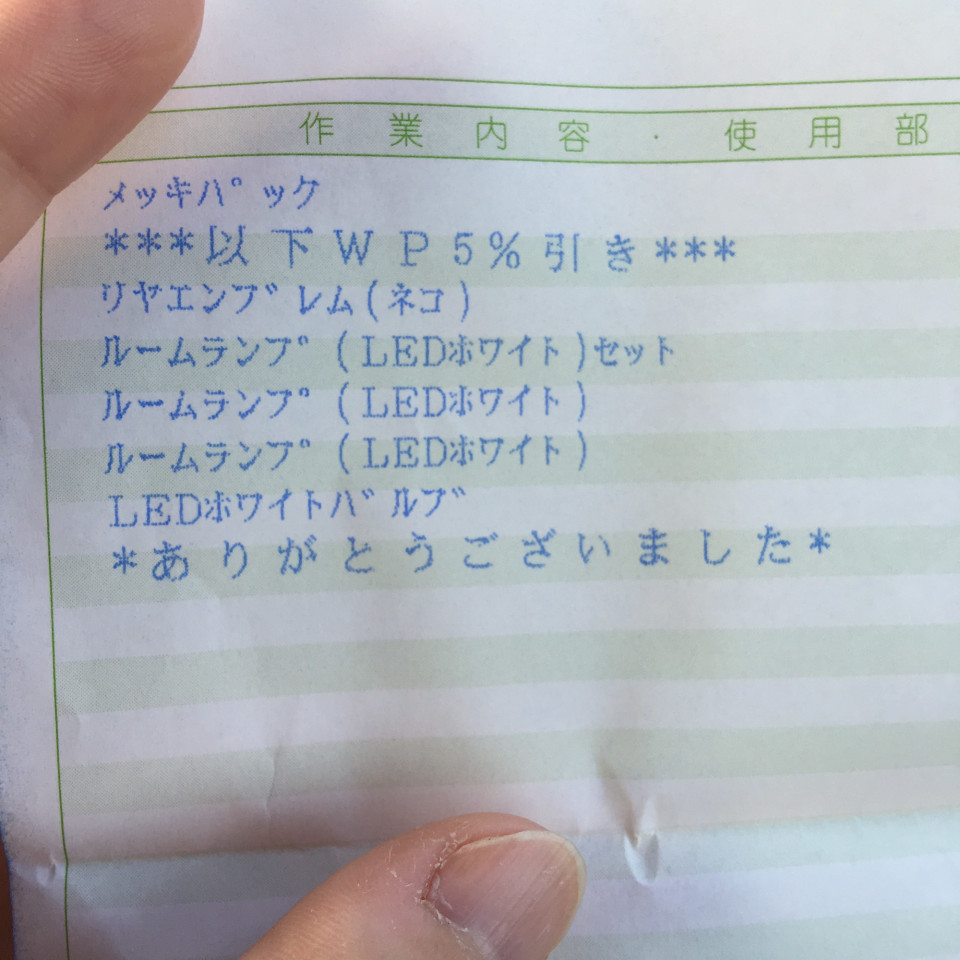 作業内容・使用部
メッキパック
***以下WP5%引き***
リヤエンブレム(ネコ)
ルームランプ(LEDホワイト)セット
ルームランプ(LEDホワイト)
ルームランプ(LEDホワイト)
LEDホワイトバルブ
*ありがとうございました*